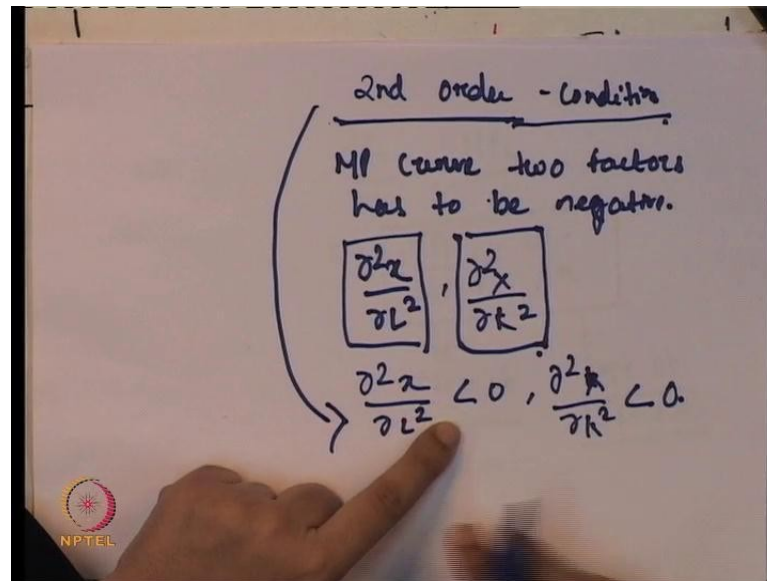 2nd order - Condition
MP Curve two factors
has to be negative.
∂²x/∂L² , ∂²x/∂K²
∂²x/∂L² < 0 , ∂²x/∂K² < 0.
NPTEL